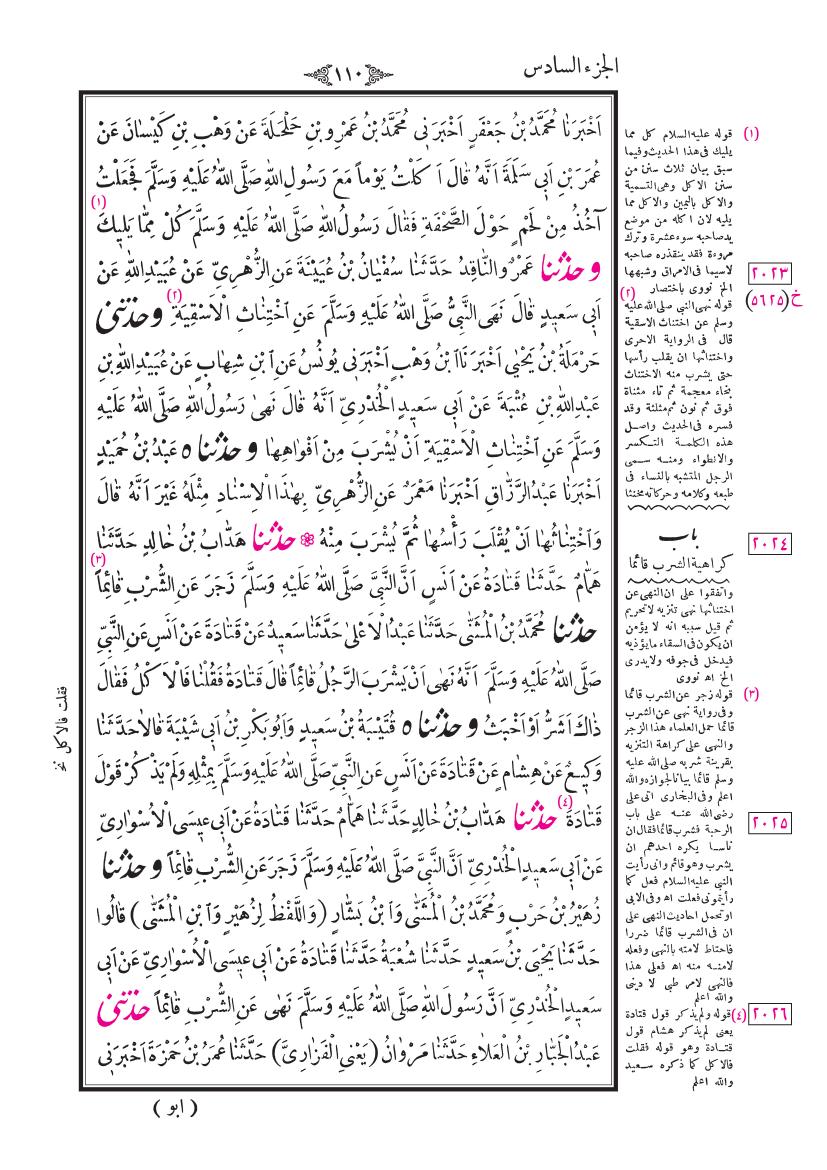 الجزء السادس
١١٠
اَخْبَرَنَا مُحَمَّدُ بْنُ جَعْفَرٍ اَخْبَرَنِى مُحَمَّدُ بْنُ عَمْرِو بْنِ حَلْحَلَةَ عَنْ وَهْبِ بْنِ كَيْسَانَ عَنْ
عُمَرَ بْنِ اَبِى سَلَمَةَ اَنَّهُ قَالَ اَ كَلْتُ يَوْماً مَعَ رَسُولِ اللهِ صَلَّى اللهُ عَلَيْهِ وَسَلَّمَ فَجَعَلْتُ
آخُذُ مِنْ لَحْمٍ حَوْلَ الصَّحْفَةِ فَقَالَ رَسُولُ اللهِ صَلَّى اللهُ عَلَيْهِ وَسَلَّمَ كُلْ مِمَّا يَلِيكَ (١)
و حدثنا عَمْرٌو النَّاقِدُ حَدَّثَنَا سُفْيَانُ بْنُ عُيَيْنَةَ عَنِ الزُّهْرِىِّ عَنْ عُبَيْدِ اللهِ عَنْ
اَبِى سَعِيدٍ قَالَ نَهَى النَّبِىُّ صَلَّى اللهُ عَلَيْهِ وَسَلَّمَ عَنِ اخْتِنَاثِ الْاَسْقِيَةِ (٢) و حدثنى
حَرْمَلَةُ بْنُ يَحْيٰى اَخْبَرَنَا ابْنُ وَهْبٍ اَخْبَرَنِى يُونُسُ عَنِ ابْنِ شِهَابٍ عَنْ عُبَيْدِ اللهِ بْنِ
عَبْدِ اللهِ بْنِ عُتْبَةَ عَنْ اَبِى سَعِيدٍ الْخُدْرِىِّ اَنَّهُ قَالَ نَهٰى رَسُولُ اللهِ صَلَّى اللهُ عَلَيْهِ
وَسَلَّمَ عَنِ اخْتِنَاثِ الْاَسْقِيَةِ اَنْ يُشْرَبَ مِنْ اَفْوَاهِهَا و حدثنا ٥ عَبْدُ بْنُ حُمَيْدٍ
اَخْبَرَنَا عَبْدُ الرَّزَّاقِ اَخْبَرَنَا مَعْمَرٌ عَنِ الزُّهْرِىِّ بِهٰذَا الْاِسْنَادِ مِثْلَهُ غَيْرَ اَنَّهُ قَالَ
وَاخْتِنَاثُهَا اَنْ يُقْلَبَ رَأْسُهَا ثُمَّ يُشْرَبَ مِنْهُ ۞ حدثنا هَدَّابُ بْنُ خَالِدٍ حَدَّثَنَا
هَمَّامٌ حَدَّثَنَا قَتَادَةُ عَنْ اَنَسٍ اَنَّ النَّبِىَّ صَلَّى اللهُ عَلَيْهِ وَسَلَّمَ زَجَرَ عَنِ الشُّرْبِ قَائِماً (٣)
حدثنا مُحَمَّدُ بْنُ الْمُثَنّٰى حَدَّثَنَا عَبْدُ الْاَعْلٰى حَدَّثَنَا سَعِيدٌ عَنْ قَتَادَةَ عَنْ اَنَسٍ عَنِ النَّبِىِّ
صَلَّى اللهُ عَلَيْهِ وَسَلَّمَ اَنَّهُ نَهٰى اَنْ يَشْرَبَ الرَّجُلُ قَائِماً قَالَ قَتَادَةُ فَقُلْنَا فَالْاَ كْلُ فَقَالَ
ذَاكَ اَشَرُّ اَوْ اَخْبَثُ و حدثنا ٥ قُتَيْبَةُ بْنُ سَعِيدٍ وَاَبُو بَكْرِ بْنُ اَبِى شَيْبَةَ قَالَا حَدَّثَنَا
وَكِيعٌ عَنْ هِشَامٍ عَنْ قَتَادَةَ عَنْ اَنَسٍ عَنِ النَّبِىِّ صَلَّى اللهُ عَلَيْهِ وَسَلَّمَ بِمِثْلِهِ وَلَمْ يَذْ كُرْ قَوْلَ
قَتَادَةَ (٤) حدثنا هَدَّابُ بْنُ خَالِدٍ حَدَّثَنَا هَمَّامٌ حَدَّثَنَا قَتَادَةُ عَنْ اَبِى عِيسَى الْاُسْوَارِىِّ
عَنْ اَبِى سَعِيدٍ الْخُدْرِىِّ اَنَّ النَّبِىَّ صَلَّى اللهُ عَلَيْهِ وَسَلَّمَ زَجَرَ عَنِ الشُّرْبِ قَائِماً و حدثنا
زُهَيْرُ بْنُ حَرْبٍ وَمُحَمَّدُ بْنُ الْمُثَنّٰى وَابْنُ بَشَّارٍ (وَاللَّفْظُ لِزُهَيْرٍ وَابْنِ الْمُثَنّٰى) قَالُوا
حَدَّثَنَا يَحْيَى بْنُ سَعِيدٍ حَدَّثَنَا شُعْبَةُ حَدَّثَنَا قَتَادَةُ عَنْ اَبِى عِيسَى الْاُسْوَارِىِّ عَنْ اَبِى
سَعِيدٍ الْخُدْرِىِّ اَنَّ رَسُولَ اللهِ صَلَّى اللهُ عَلَيْهِ وَسَلَّمَ نَهٰى عَنِ الشُّرْبِ قَائِماً حدثنى
عَبْدُ الْجَبَّارِ بْنُ الْعَلَاءِ حَدَّثَنَا مَرْوَانُ (يَعْنِى الْفَزَارِىَّ) حَدَّثَنَا عُمَرُ بْنُ حَمْزَةَ اَخْبَرَنِى
( ابو )
(١) قوله عليه السلام كل مما
يليك فى هذا الحديث وفيما
سبق بيان ثلاث سنن من
سنن الاكل وهى التسمية
والاكل باليمين والاكل مما
يليه لان اكله من موضع
يد صاحبه سوء عشرة وترك
مروءة فقد يتقذره صاحبه
لاسيما فى الامراق وشبهها
الخ نووى باختصار
(٢) قوله نهى النبى صلى الله عليه
وسلم عن اختناث الاسقية
قال فى الرواية الاخرى
واختناثها ان يقلب رأسها
حتى يشرب منه الاختناث
بخاء معجمة ثم تاء مثناة
فوق ثم نون ثم مثلثة وقد
فسره فى الحديث واصل
هذه الكلمة التكسر
والانطواء ومنه سمى
الرجل المتشبه بالنساء فى
طبعه وكلامه وحركاته مخنثا
باب
كراهية الشرب قائما
واتفقوا على ان النهى عن
اختناثها نهى تنزيه لا تحريم
ثم قيل سببه انه لا يؤمن
ان يكون فى السقاء ما يؤذيه
فيدخل فى جوفه ولا يدرى
الخ اه نووى
(٣) قوله زجر عن الشرب قائما
وفى رواية نهى عن الشرب
قائما حمل العلماء هذا الزجر
والنهى على كراهة التنزيه
بقرينة شربه صلى الله عليه
وسلم قائما بيانا لجوازه والله
اعلم وفى البخارى اتى على
رضى الله عنه على باب
الرحبة فشرب قائما فقال ان
ناسا يكره احدهم ان
يشرب وهو قائم وانى رأيت
النبى عليه السلام فعل كما
رأيتمونى فعلت اه وفى الابى
او تحمل احاديث النهى على
ان فى الشرب قائما ضررا
فاحتاط لامته بالنهى وفعله
لامنه منه اه فعلى هذا
فالنهى لامر طبى لا دينى
والله اعلم
(٤) قوله ولم يذكر قول قتادة
يعنى لم يذكر هشام قول
قتادة وهو قوله فقلت
فالاكل كما ذكره سعيد
والله اعلم
٢٠٢٣
خ (٥٦٢٥)
٢٠٢٤
٢٠٢٥
٢٠٢٦
فقلت فالاكل نخ